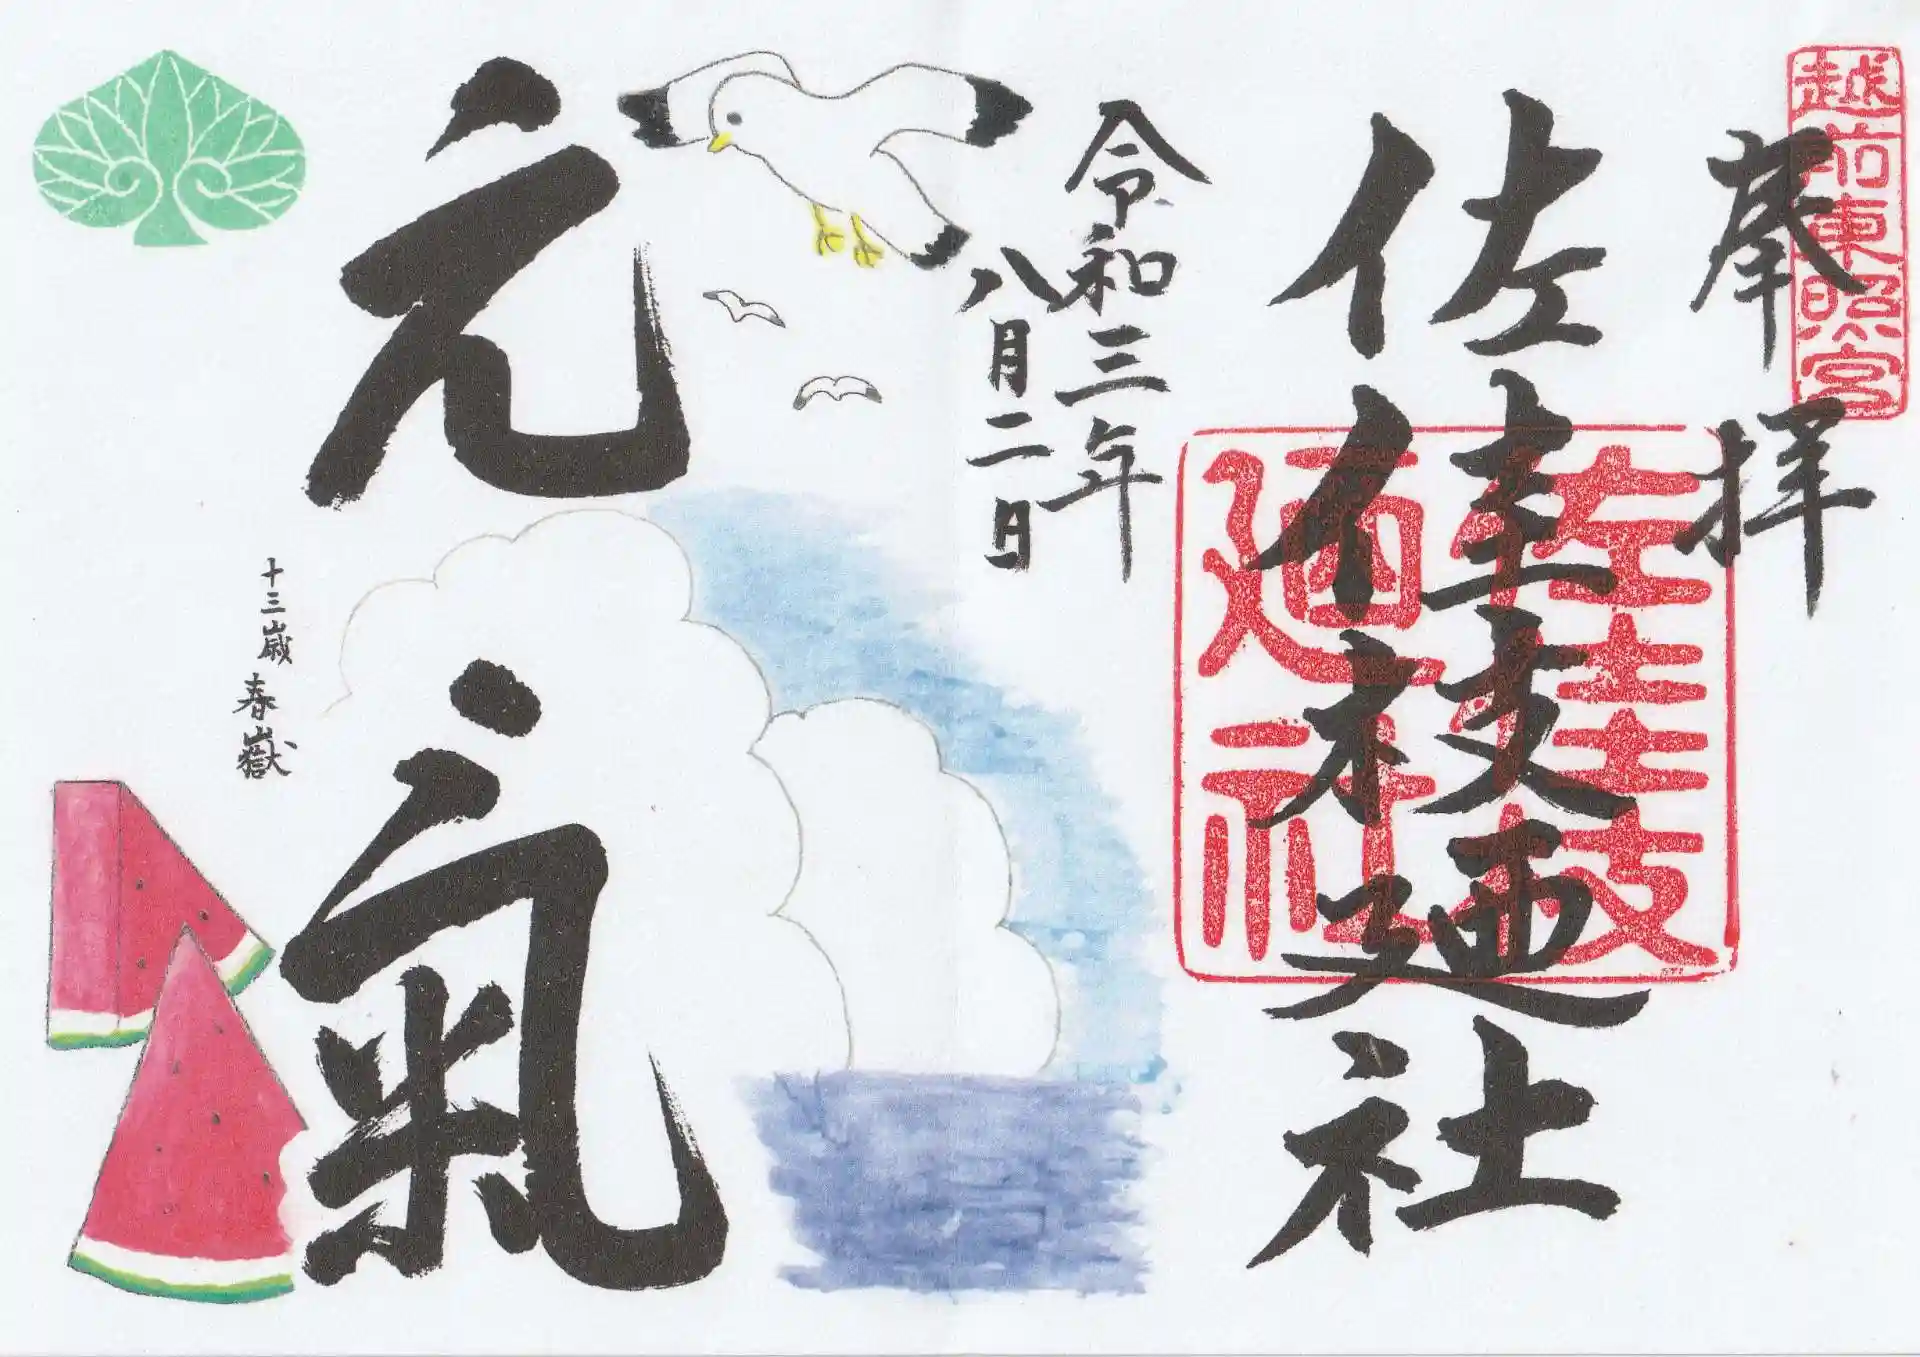 越前東照宮
奉拝
佐佳枝廼社
佐佳枝廼社
令和三年
八月二日
元氣
十三歳 春嶽